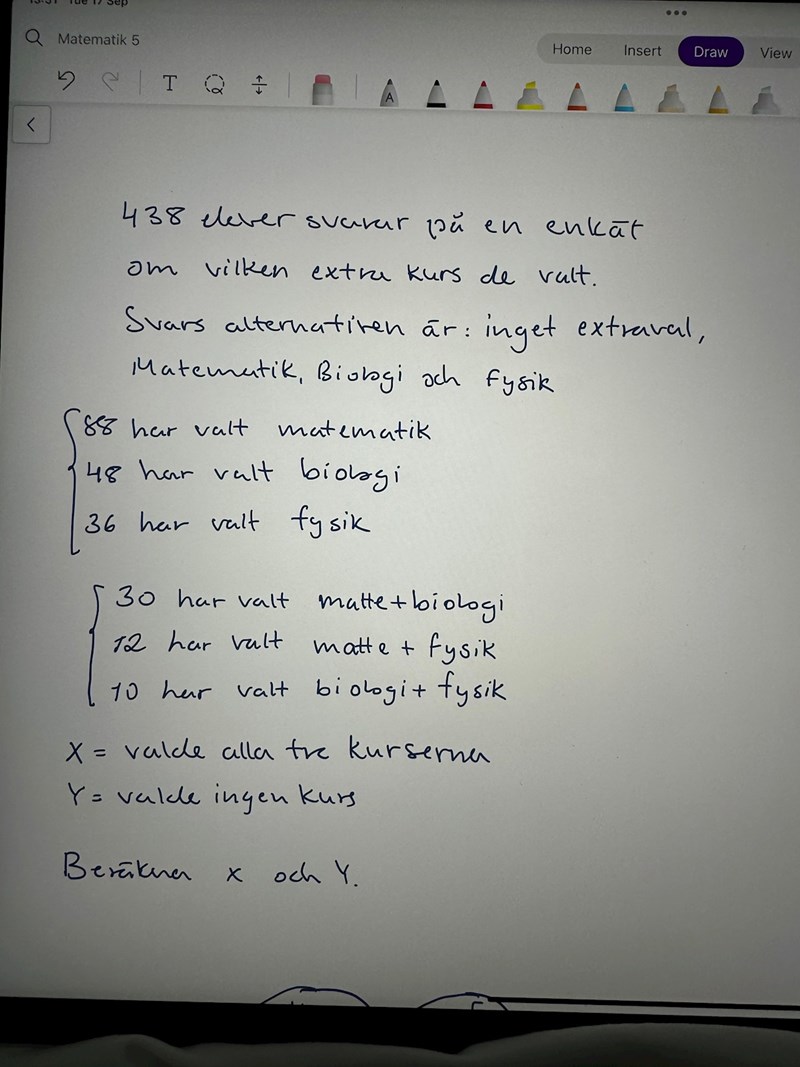 Matematik 5
Home Insert Draw View
T
A
438 elever svarar på en enkät
om vilken extra kurs de valt.
Svars alternativen är: inget extraval,
Matematik, Biologi och fysik
88 har valt matematik
48 har valt biologi
36 har valt fysik
30 har valt matte+biologi
12 har valt matte + fysik
10 har valt biologi+ fysik
X = valde alla tre kurserna
Y = valde ingen kurs
Beräkna x och Y.